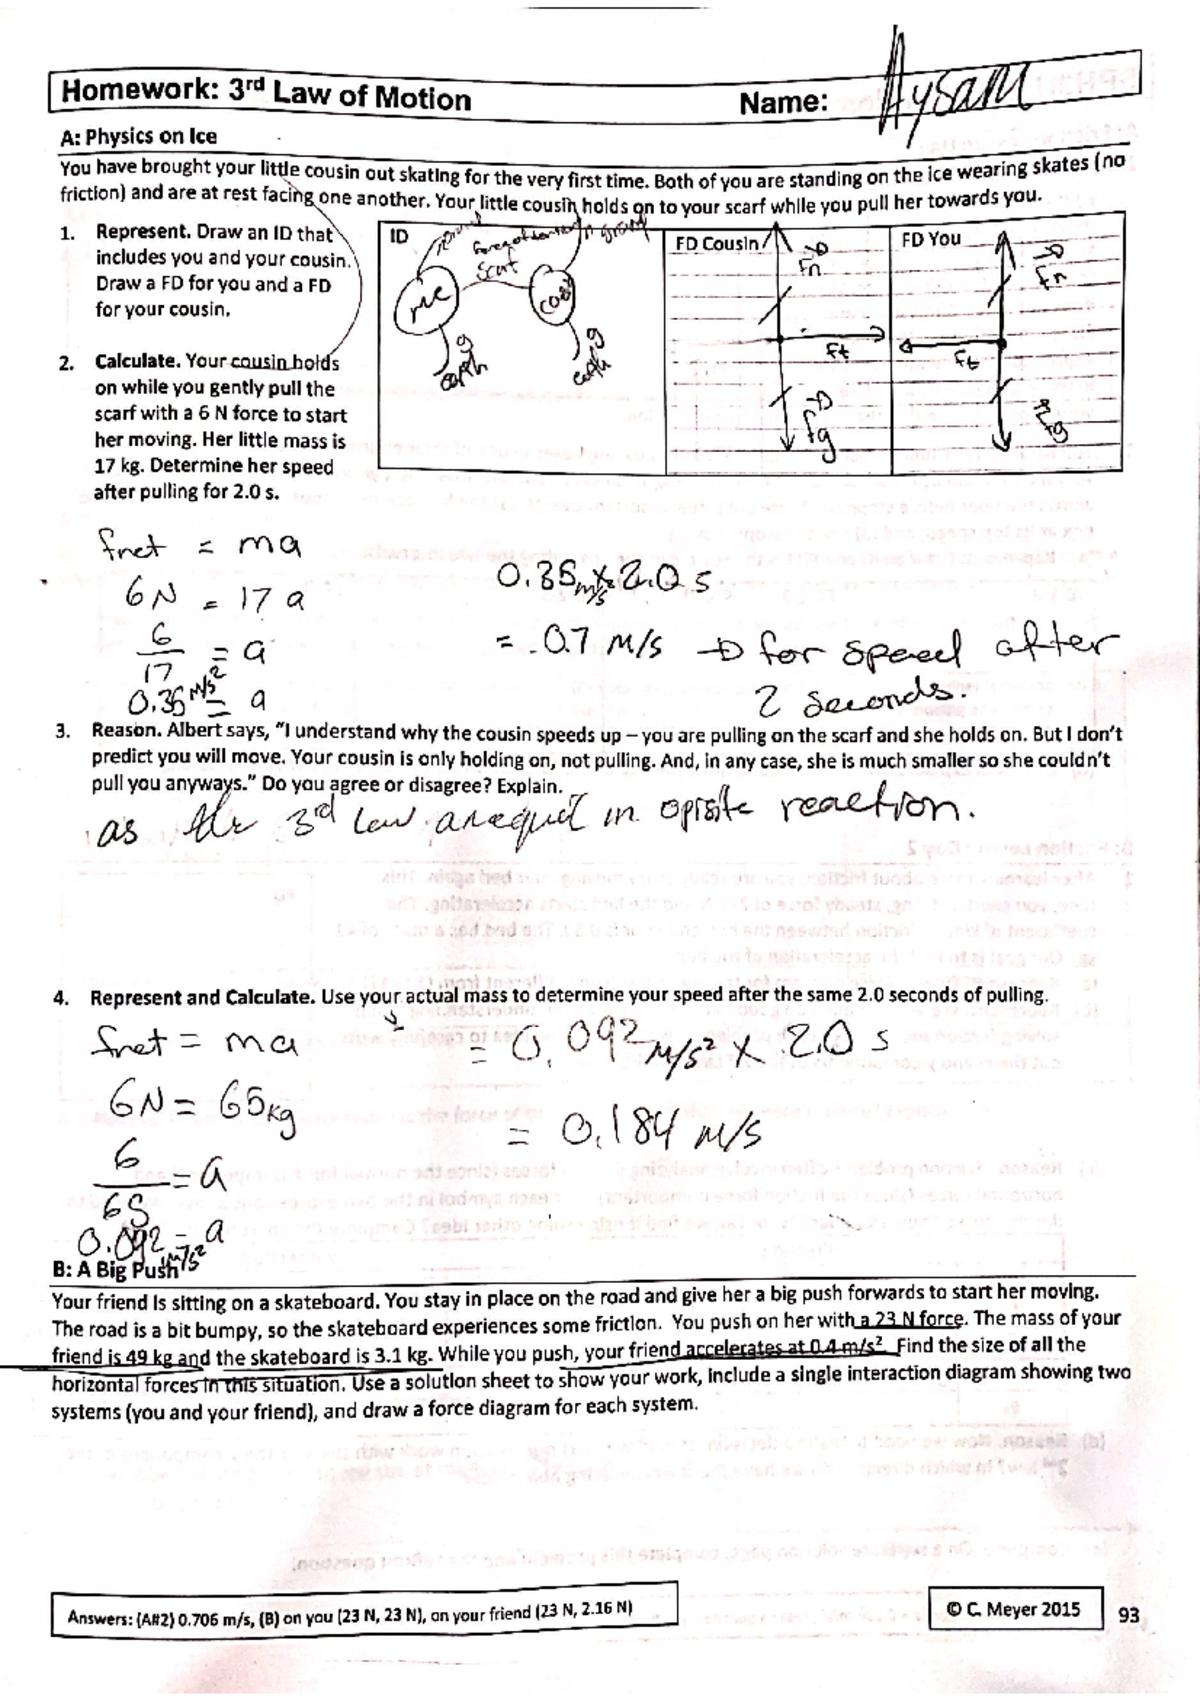 Homework: 3rd Law of Motion
Name: Aysam
A: Physics on Ice
You have brought your little cousin out skating for the very first time. Both of you are standing on the ice wearing skates (no
friction) and are at rest facing one another. Your little cousin holds on to your scarf while you pull her towards you.
1. Represent. Draw an ID that
includes you and your cousin.
Draw a FD for you and a FD
for your cousin.
2. Calculate. Your cousin holds
on while you gently pull the
scarf with a 6 N force to start
her moving. Her little mass is
17 kg. Determine her speed
after pulling for 2.0 s.
ID
me
g
earth
g
earth
FD Cousin
Fn
Ft
Fg
FD You
Fn
Ft
Fg
fnet = ma
6N = 17 a
6/17 = a
0.36 m/s² = a
0.35 m/s x 2.0 s
= 0.7 m/s → for speed after
2 seconds.
3. Reason. Albert says, "I understand why the cousin speeds up – you are pulling on the scarf and she holds on. But I don't
predict you will move. Your cousin is only holding on, not pulling. And, in any case, she is much smaller so she couldn't
pull you anyways." Do you agree or disagree? Explain.
as the 3rd law in reaction.
4. Represent and Calculate. Use your actual mass to determine your speed after the same 2.0 seconds of pulling.
fnet = ma
6N = 65kg
6/65 = a
0.092 m/s² = a
= 0.092 m/s² x 2.0 s
= 0.184 m/s
B: A Big Push
Your friend is sitting on a skateboard. You stay in place on the road and give her a big push forwards to start her moving.
The road is a bit bumpy, so the skateboard experiences some friction. You push on her with a 23 N force. The mass of your
friend is 49 kg and the skateboard is 3.1 kg. While you push, your friend accelerates at 0.4 m/s². Find the size of all the
horizontal forces in this situation. Use a solution sheet to show your work, include a single interaction diagram showing two
systems (you and your friend), and draw a force diagram for each system.
Answers: (A#2) 0.706 m/s, (B) on you (23 N, 23 N), on your friend (23 N, 2.16 N)
© C. Meyer 2015
93